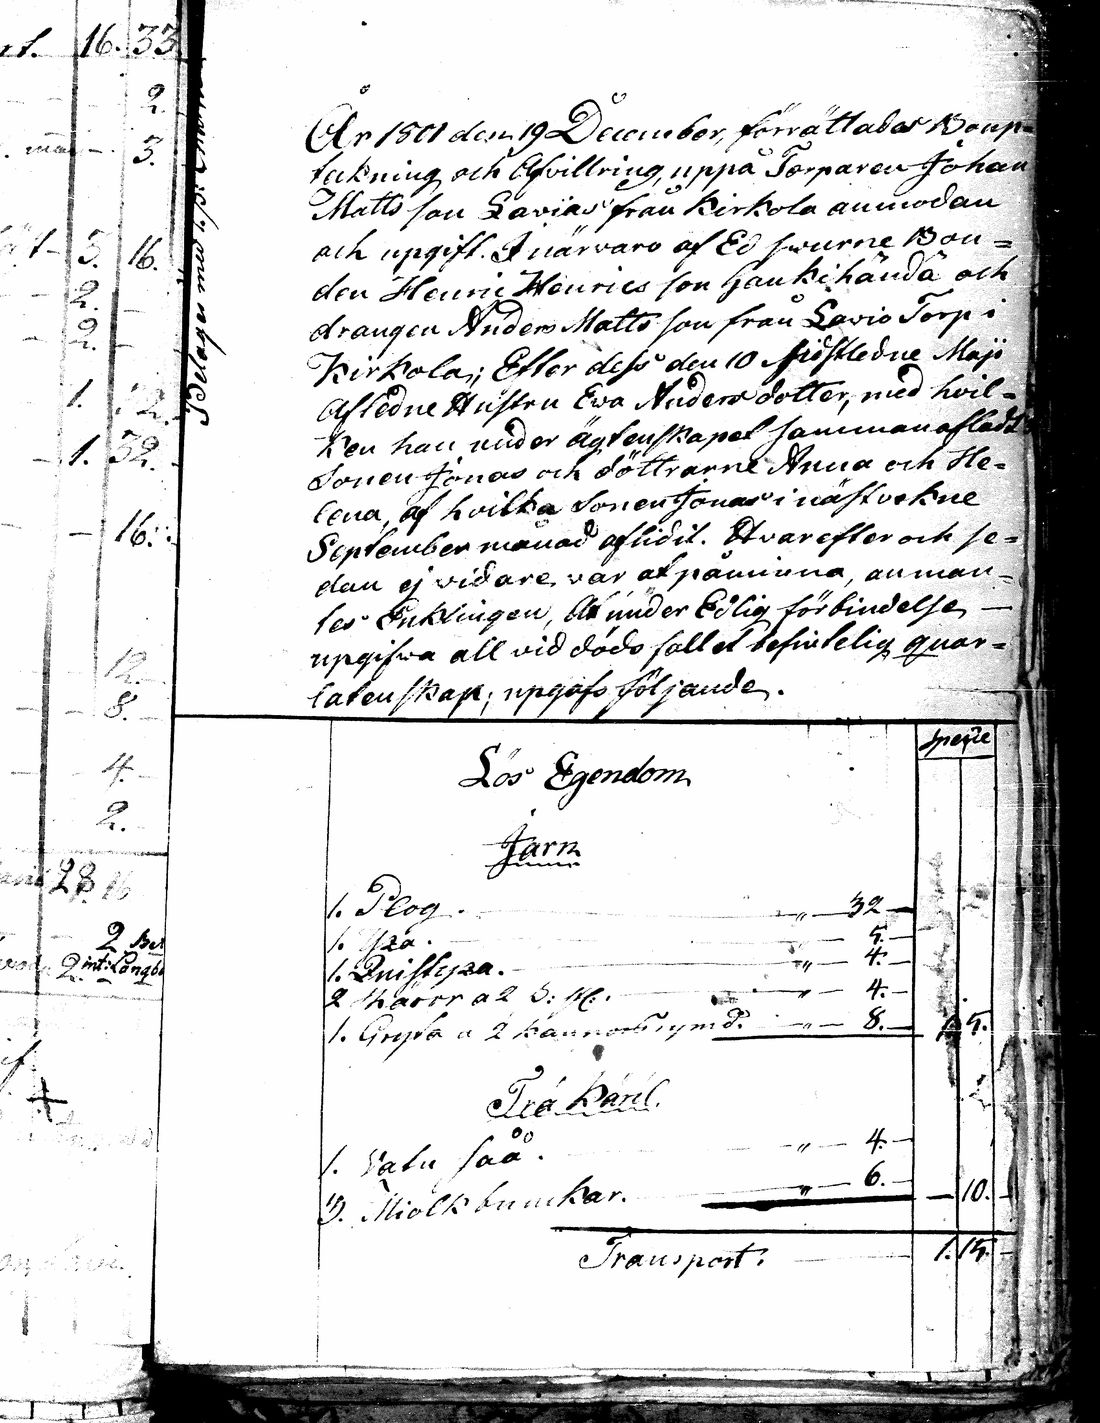 rt. 16. 33.
2.
3.
5. 16.
2.
2.
1. 32.
1. 32.
16.
12.
8.
4.
2.
28. 16
2
2 int: Långb
Belages med
År 1801 den 19 December, förrättades Boup=
tekning och Afvittring, uppå Torparen Johan
Matts son Lavias från Kirkola anmodan
och upgift. I närvaro af Ed swurne Bon=
den Henric Henrics son Haukihändä och
drängen Anders Matts son från Lavio Torp i
Kirkola; Efter dess den 10 sidstledne Maji
Afledne Hustru Ewa Anders dotter, med hvil=
ken han under ägtenskapet sammanafladt
Sonen Jonas och döttrarne Anna och He=
lena, af hvilka Sonen Jonas i nästvekne
September månad aflidit. Hvarefter och se=
dan ej vidare var at påminna, anman=
tes Enklingen, At under Edlig förbindelse
upgifva all vid döds fallet befintelig qvar=
latenskap; upgafs följande.
Specie
Lös Egendom
Jarn
1. Plog. " 32
1. Yxa. " 5.
1. Qvistyxa. " 4.
2 Skäror a 2 S: st: " 4.
1. Gryta a 2 kannors rymd. " 8. 1. 5.
Trä Käril.
1. Vatu såå. " 4.
3. Miölk bunkar. " 6. 10.
Transport: 1. 15.